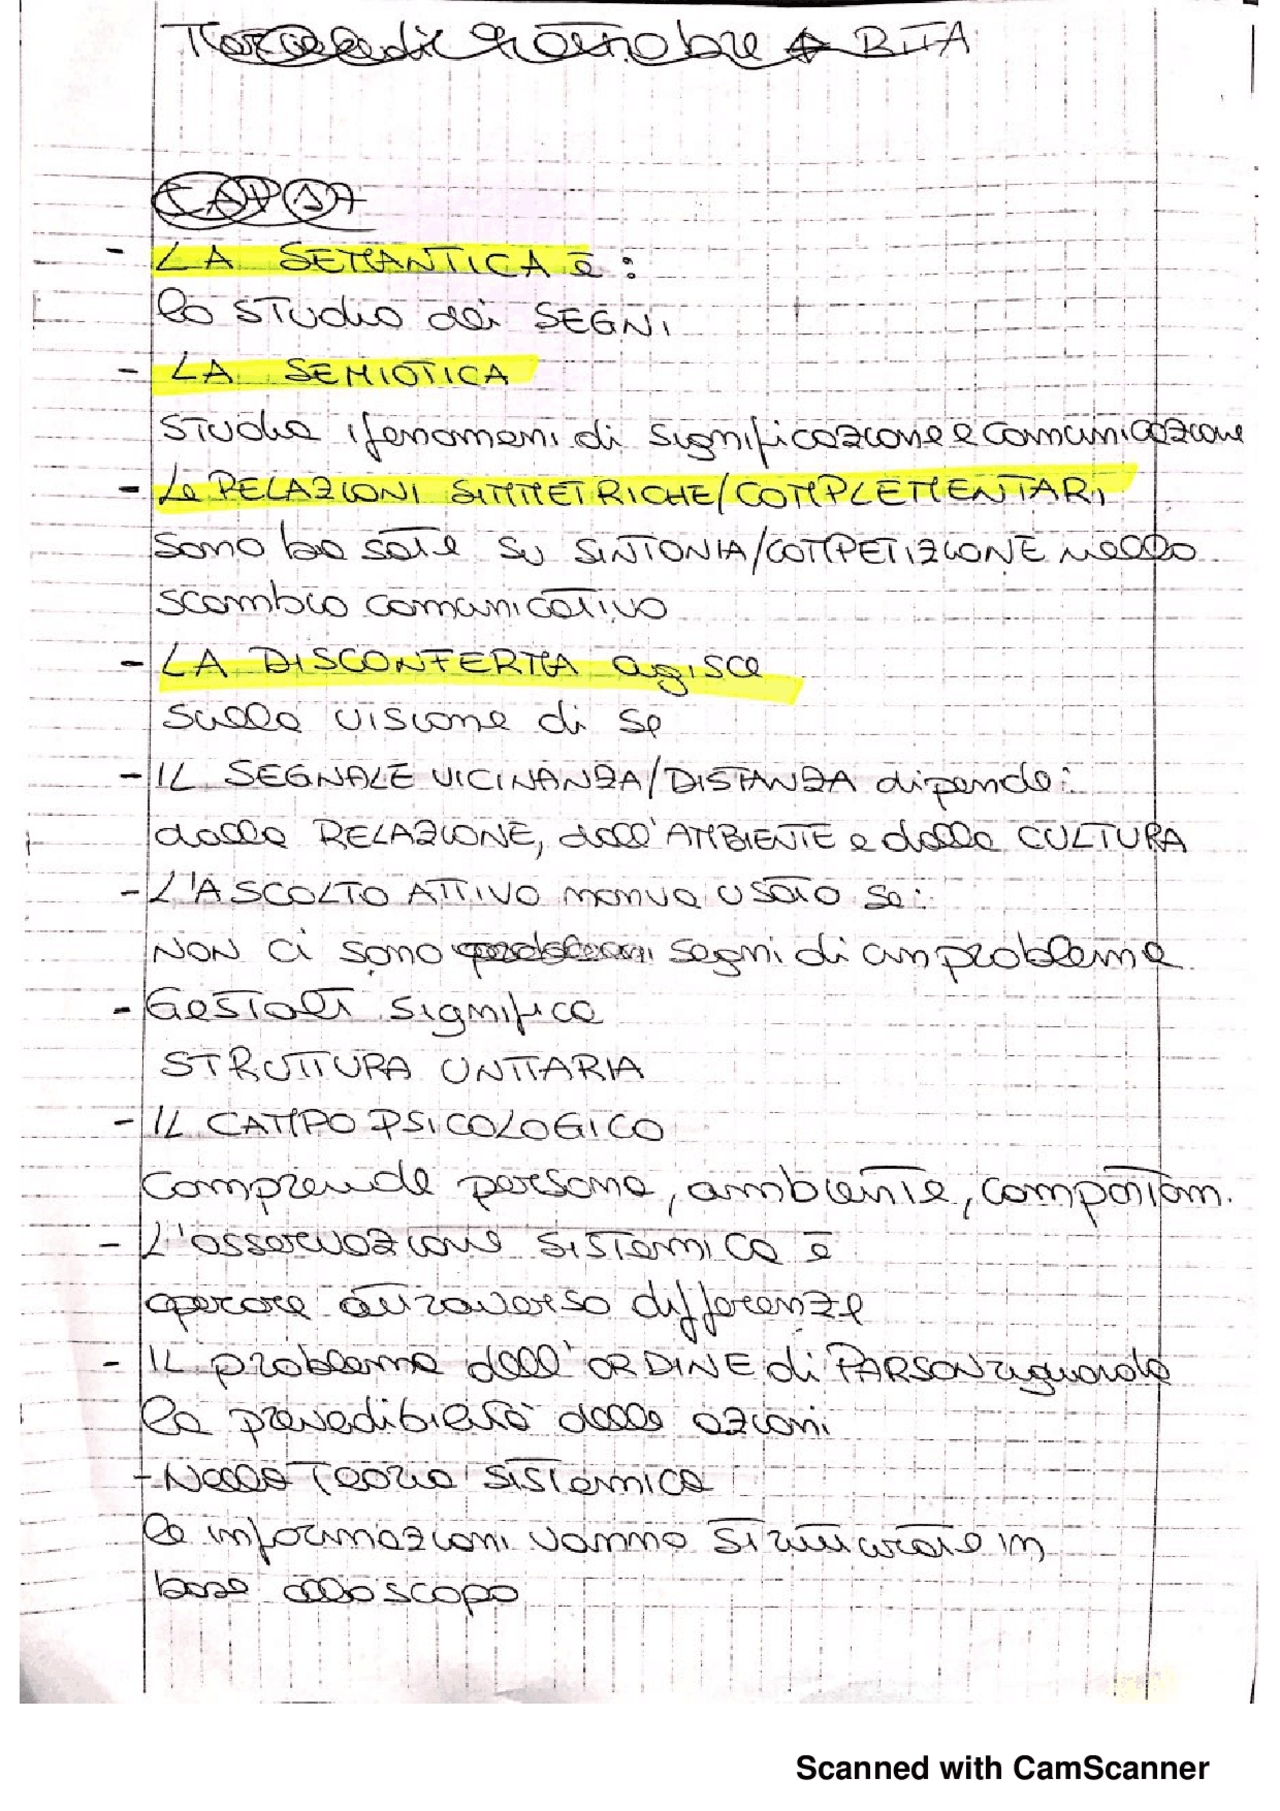 BITA
CAP 17
- LA SEMANTICA è :
lo STUdio dei SEGNI
- LA SEMIOTICA
STUdia i fenomeni di significazione e comunicazione
- Le RELAZIONI SIMMETRICHE/COMPLEMENTARI
sono basate su SINTONIA/COMPETIZIONE nello
scambio comunicativo
- LA DISCONFERMA agisce
sulla visione di se
- IL SEGNALE VICINANZA/DISTANZA dipende:
dalla RELAZIONE, dall'AMBIENTE e dalla CULTURA
- L'ASCOLTO ATTIVO non va usato se:
NON ci sono problemi segni di un problema.
- Gestalt significa
STRUTTURA UNITARIA
- IL CAMPO PSICOLOGICO
Comprende persona, ambiente, comportam.
- L'osservazione sistemica è
operare attraverso differenze
- IL problema dell'ORDINE di PARSON riguarda
la prevedibilità delle azioni
- Nella Teoria sistemica
le informazioni vanno strutturate in
base allo scopo
Scanned with CamScanner